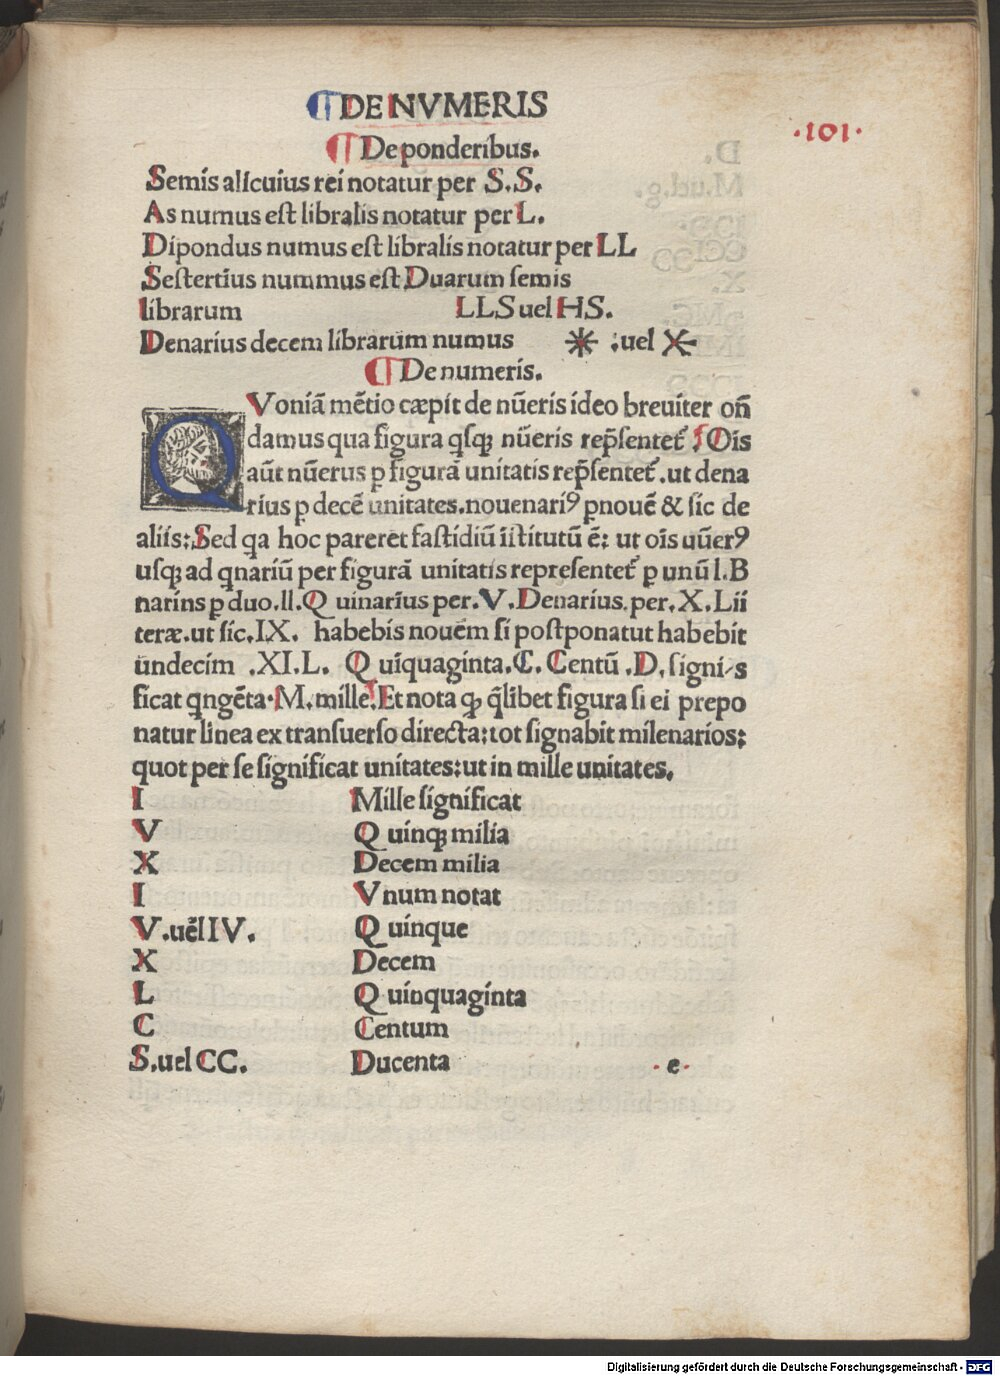 ¶ DE NVMERIS
·101·
¶ De ponderibus.
Semis alicuius rei notatur per S.S.
As numus eſt libralis notatur per L.
Dipondus numus eſt libralis notatur per LL
Seſtertius nummus eſt Duarum ſemis
librarum LLS uel HS.
Denarius decem librarum numus ⁎ :uel X
¶ De numeris.
QVoniã mẽtio cæpit de nũeris ideo breuiter oñ
damus qua figura qſqꝫ nũeris rep̃ſentet᷑ ¶ Oĩs
aũt nũerus ꝑ figurã unitatis rep̃ſentet᷑. ut dena
rius ꝑ decẽ unitates.nouenariꝰ ꝑnouẽ & ſic de
aliis: Sed qa hoc pareret faſtidiũ īſtitutũ ē: ut oĩs uũerꝰ
uſqꝫ ad qnariũ per figurã unitatis repreſentet᷑ ꝑ unũ l.B
narins ꝑ duo.ll.Quinarius per.V.Denarius.per.X.Lii
teræ.ut ſic.IX. habebis nouem ſi poſtponatut habebit
ũndecim .XI.L. Quĩquaginta.C. Centũ .D. ſigni-s
ficat qngẽta·M.mille.¶Et nota qꝫ q̃libet figura ſi ei prepo
natur linea ex tranſuerſo directa:tot ſignabit milenarios:
quot per ſe ſignificat unitates:ut in mille unitates.
I Mille ſignificat
V Quinqꝫ milia
X Decem milia
I Vnum notat
V.uẽl IV. Quinque
X Decem
L Quinquaginta
C Centum
S.uel CC. Ducenta ·e·
Digitalisierung gefördert durch die Deutsche Forschungsgemeinschaft - DFG